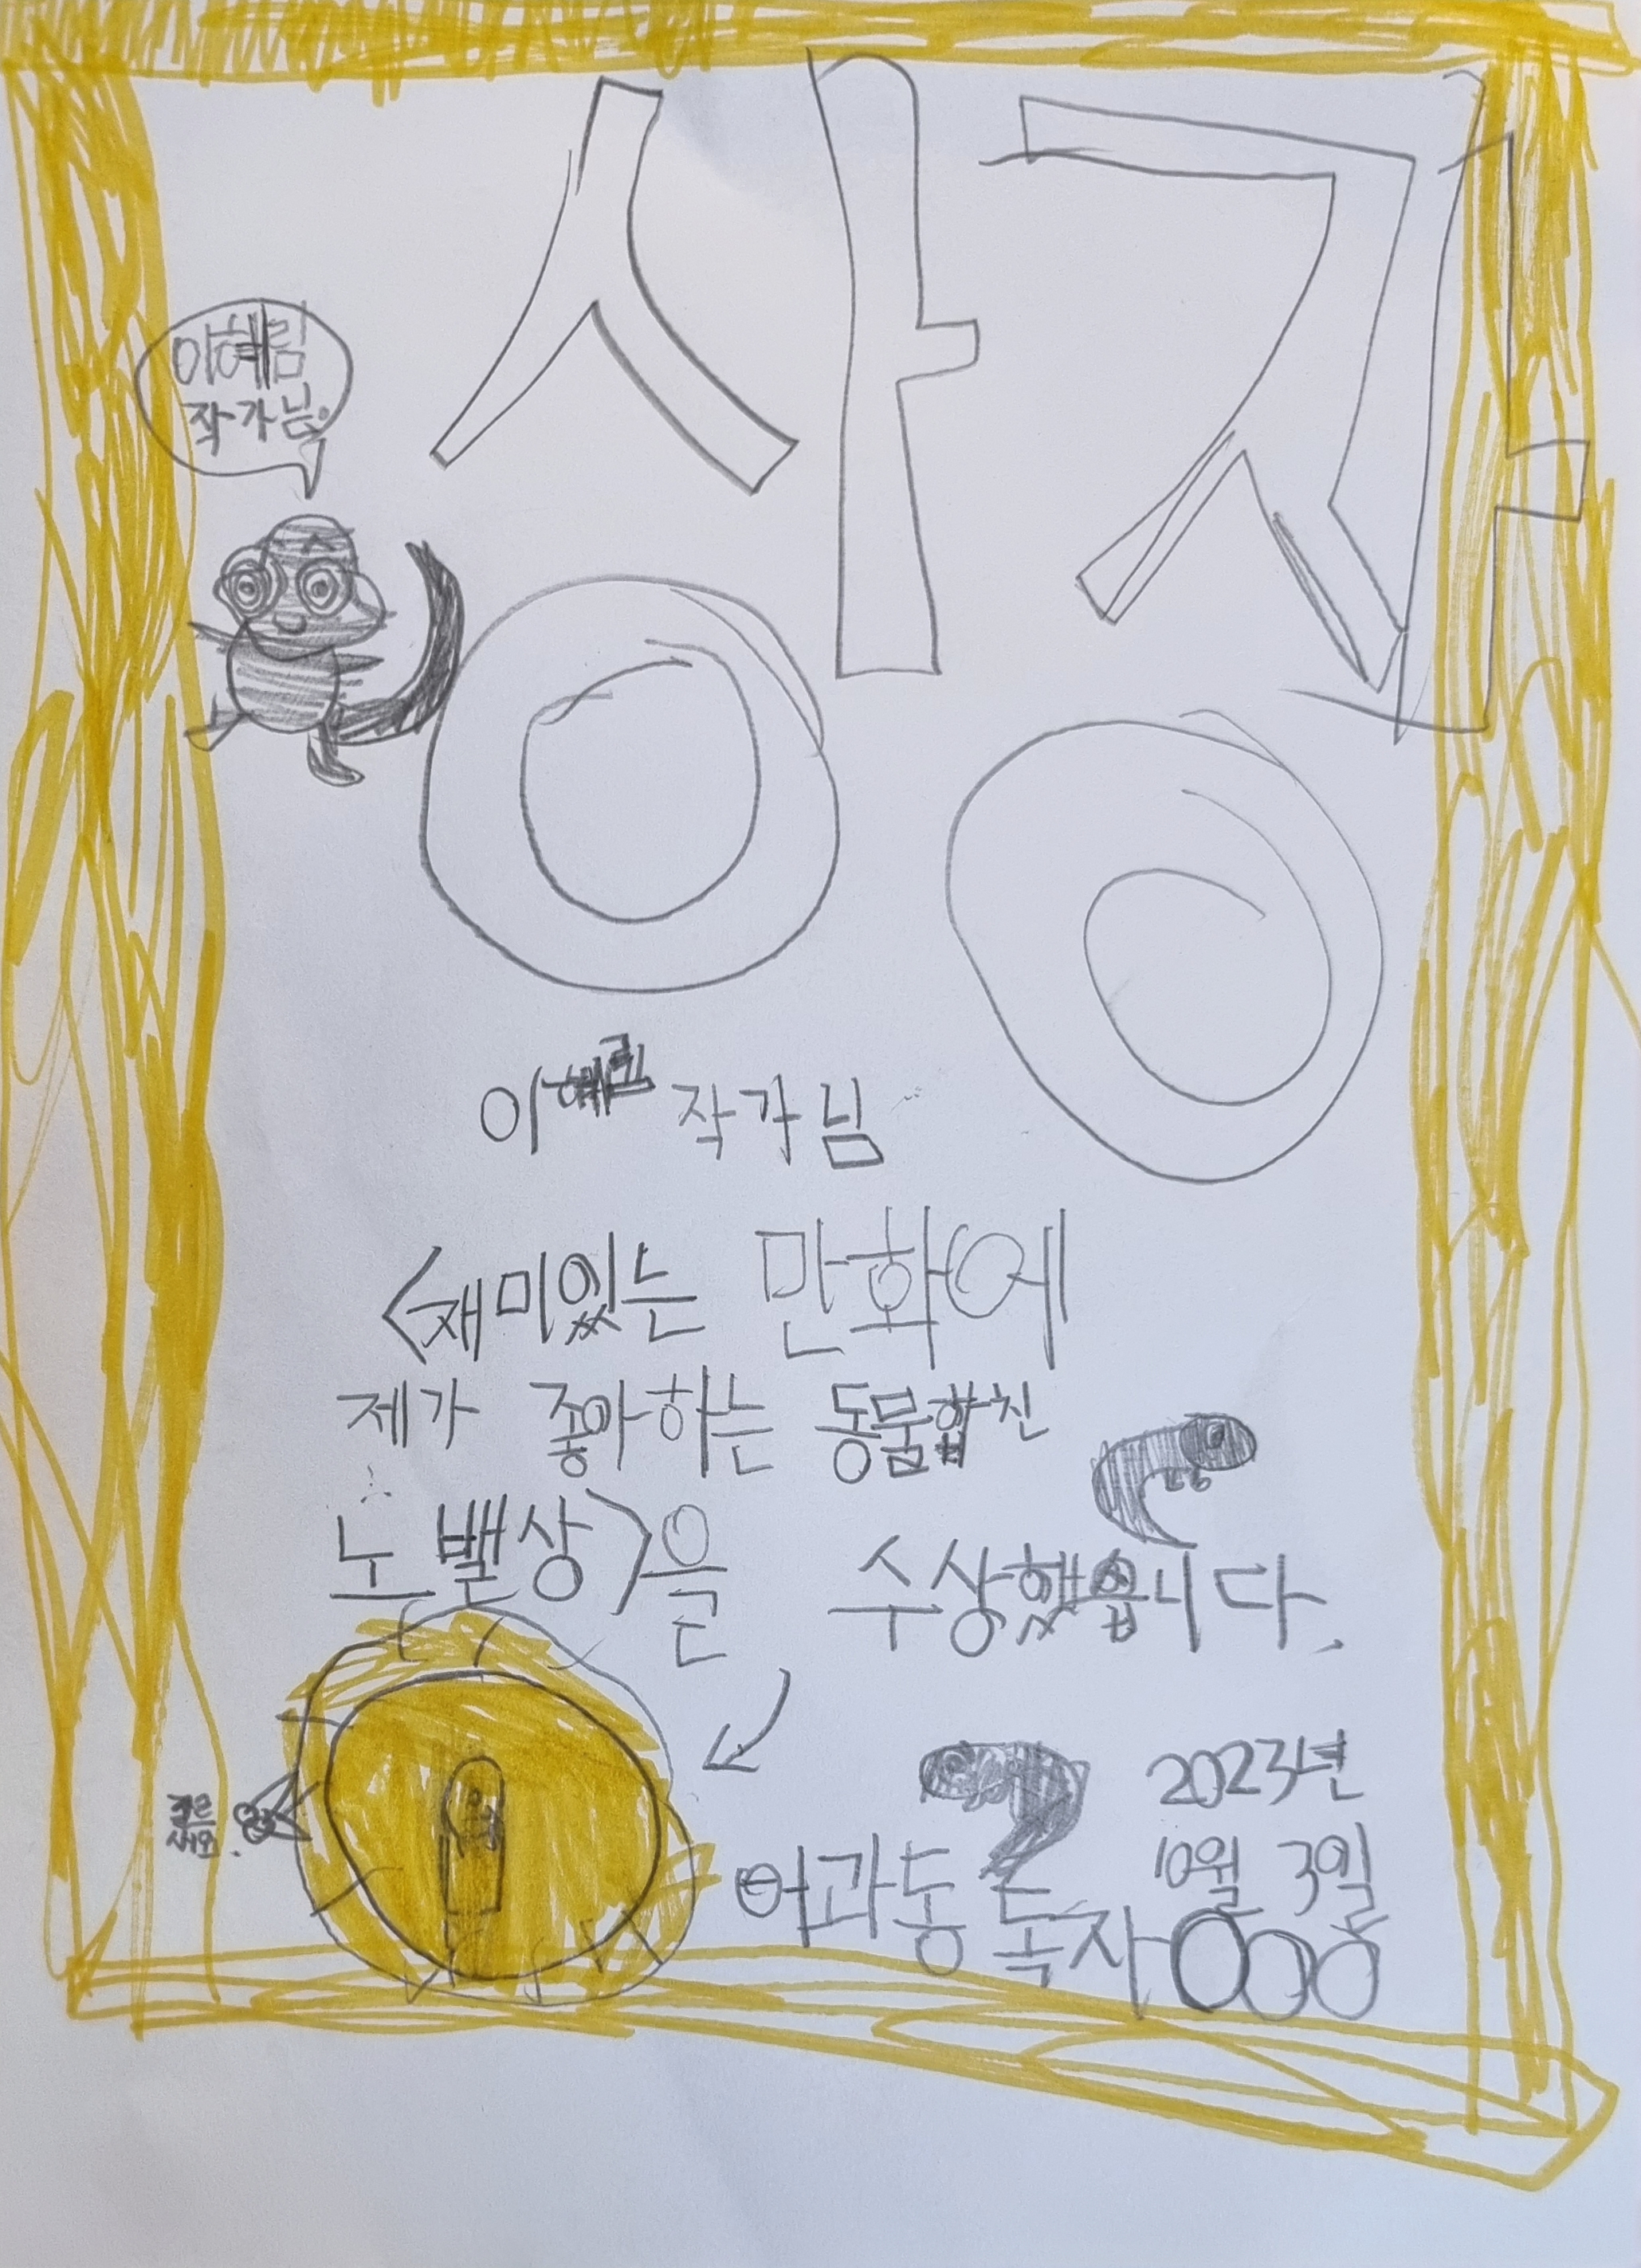 상장
이혜림
작가님
이혜림 작가님
<재미있는 만화에
제가 좋아하는 동물합친
노벨상>을 수상했습니다.
2023년
10월 3일
어과동 독자 OOO